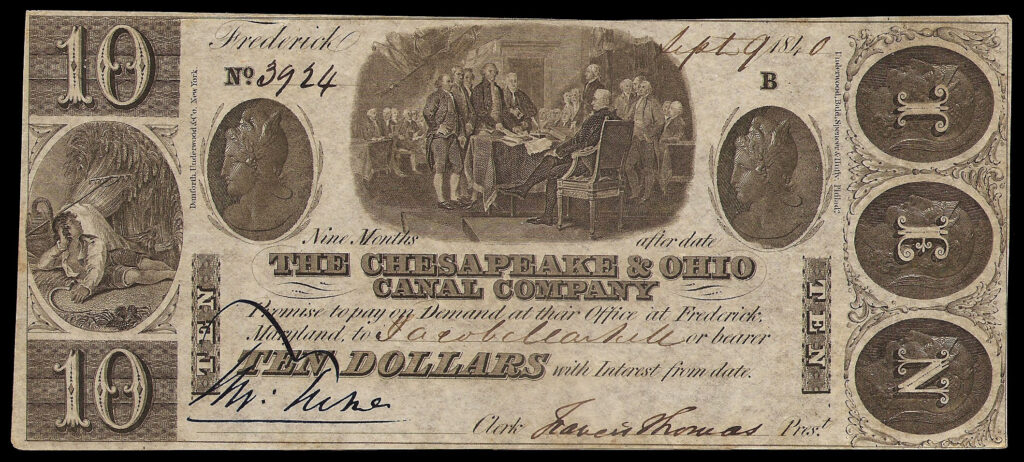 10
Frederick
Sept 9 1840
No. 3924
B
Danforth, Underwood & Co. New York.
Underwood, Bald, Spencer & Hufty, Philadª.
T
E
N
Nine Months after date
THE CHESAPEAKE & OHIO
CANAL COMPANY
Promise to pay on Demand, at their Office at Frederick,
Maryland, to Jacob Markell or bearer
TEN DOLLARS with Interest from date.
TEN
TEN
10
Clerk Francis Thomas Pres.t